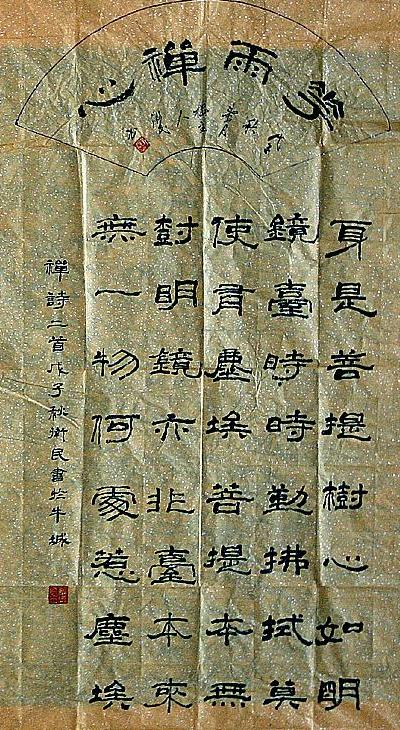 雨禪心
身是菩提樹心如明
鏡臺時時勤拂拭莫
使有塵埃菩提本無
尌明鏡亦非臺本來
無一物何處惹塵埃
禪詩二首戊子秋衛民書於牛城